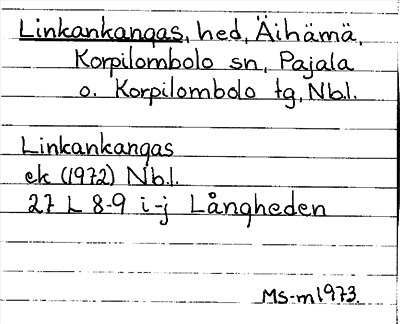 Linkankangas, hed, Äihämä,
Korpilombolo sn, Pajala
o. Korpilombolo tg, Nbl.
Linkankangas
ek (1972) Nbl.
27 L 8-9 i-j Långheden
Ms-m 1973.